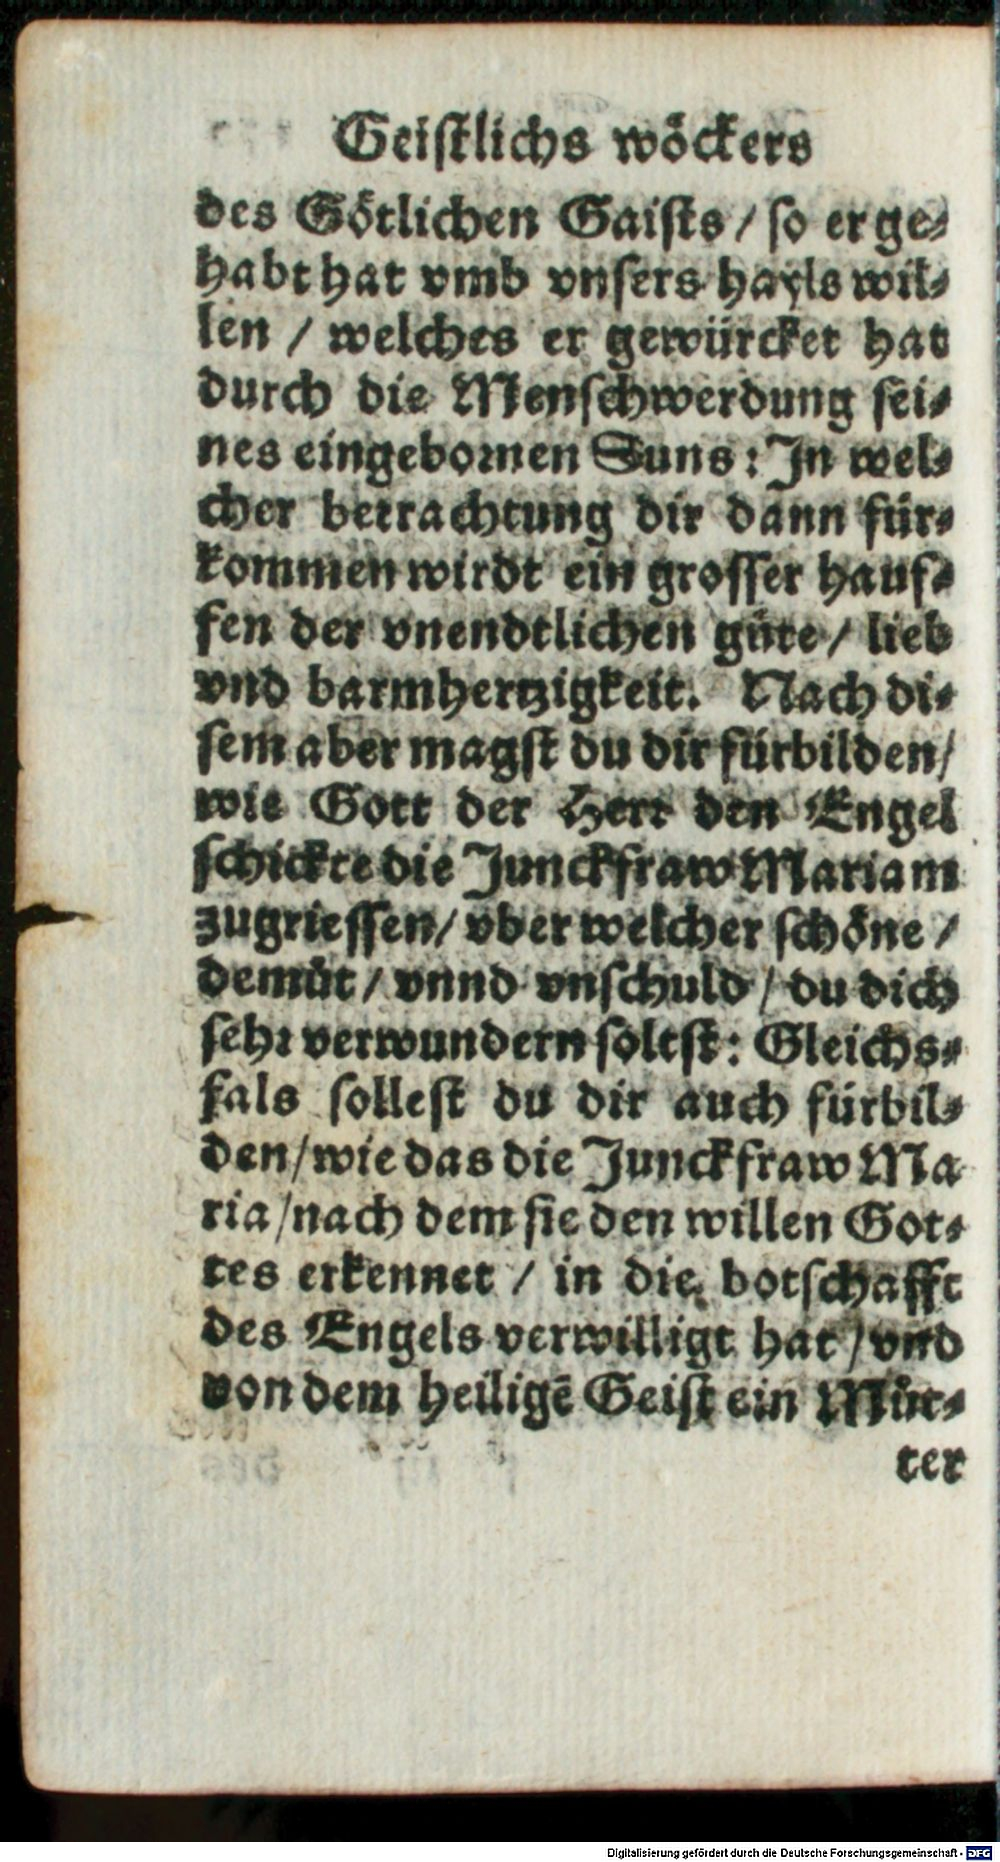 Geistlichs wöckers
des Götlichen Gaists / so er ge⸗
habt hat vmb vnsers hayls wil⸗
len / welches er gewürcket hat
durch die Menschwerdung sei⸗
nes eingebornen Suns: In wel⸗
cher betrachtung dir dann für⸗
kommen wirdt ein grosser hauf⸗
fen der vnendtlichen güte / lieb
vnd barmhertzigkeit. Nach di⸗
sem aber magst du dir fürbilden /
wie Gott der Herr den Engel
schickte die Junckfraw Mariam
zugriessen / vber welcher schöne /
demůt / vnnd vnschuld / du dich
sehr verwundern soltst: Gleichs⸗
fals sollest du dir auch fürbil⸗
den / wie das die Junckfraw Ma⸗
ria / nach dem sie den willen Got⸗
tes erkennet / in die botschafft
des Engels verwilligt hat / vnd
von dem heiligē Geist ein Můt⸗
ter
Digitalisierung gefördert durch die Deutsche Forschungsgemeinschaft - DFG